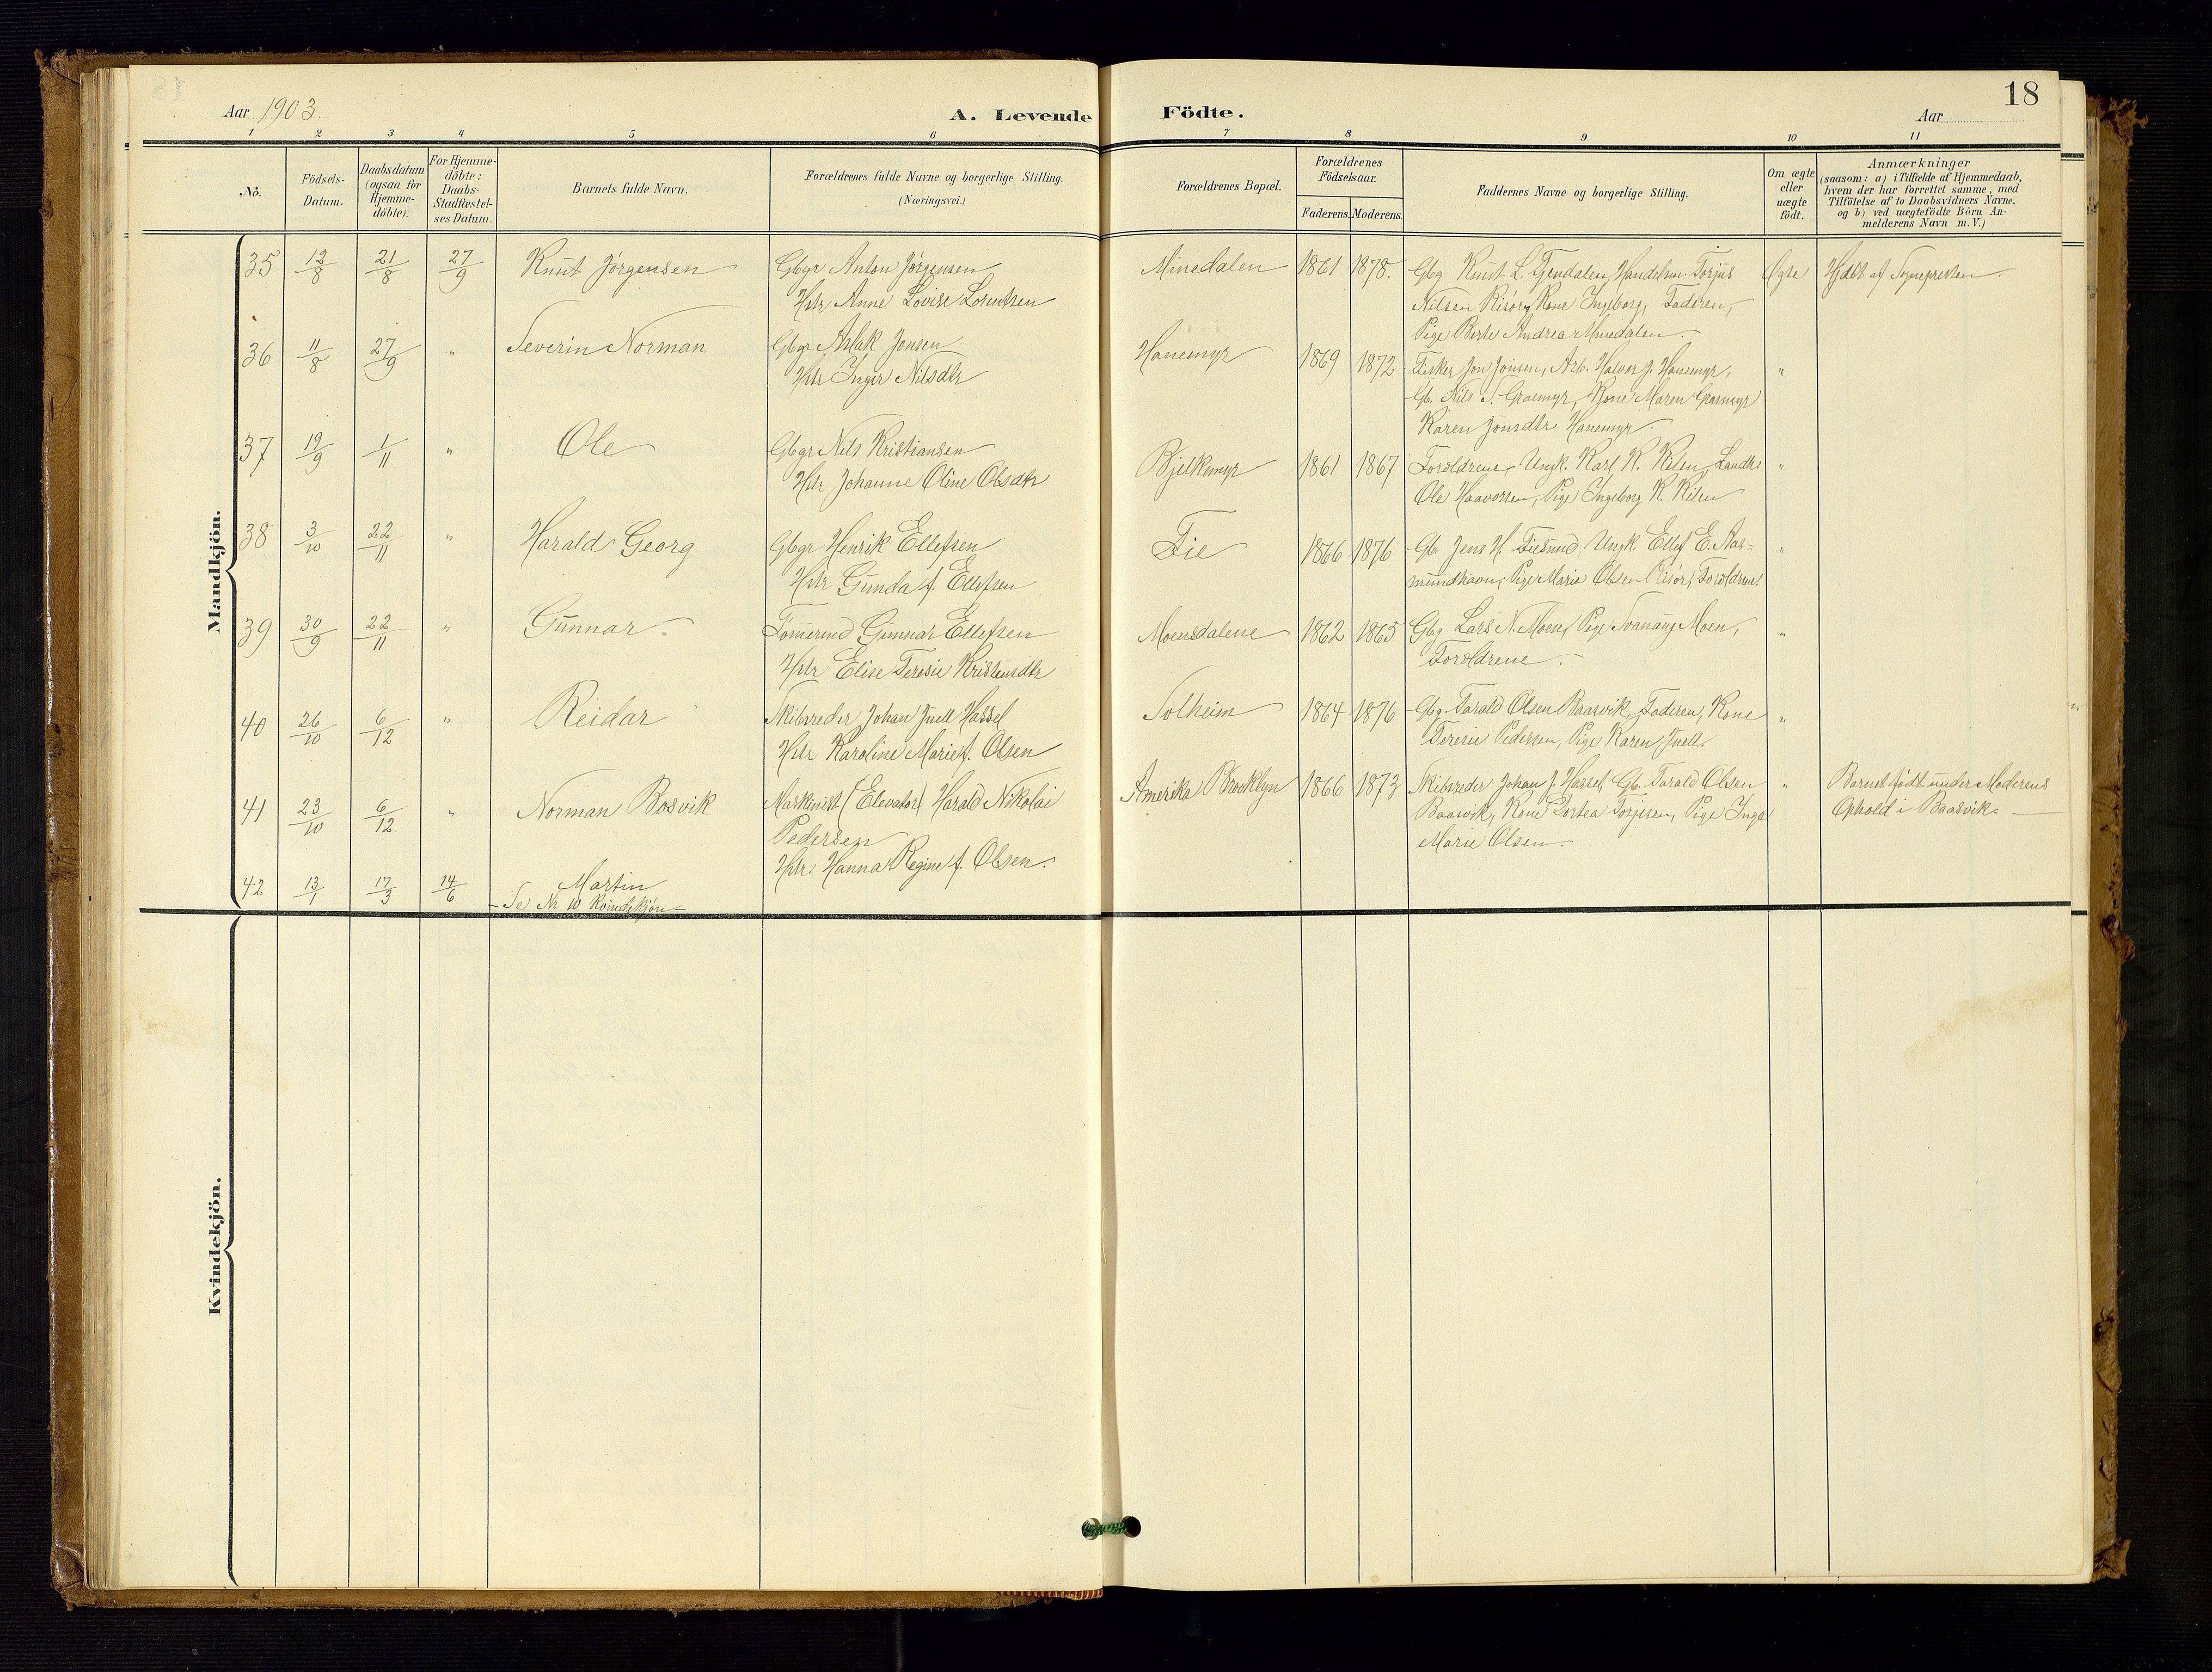 18
Aar 1903
A. Levende Födte.
Aar
1 2 3 4 5 6 7 8 9 10 11
No.
Födsels-Datum.
Daabsdatum (ogsaa for Hjemme-döbte).
For Hjemme-döbte: Daabs-Stadfæstel-ses Datum.
Barnets fulde Navn.
Forældrenes fulde Navne og borgerlige Stilling.
(Næringsvei.)
Forældrenes Bopæl.
Forældrenes Födselsaar.
Faderens. Moderens.
Faddernes Navne og borgerlige Stilling.
Om ægte eller uægte födt.
Anmærkninger
(saasom: a) i Tilfælde af Hjemmedaab,
hvem der har forrettet samme, med
Tilföielse af to Daabsvidners Navne,
og b) ved uægtefödte Börn An-
melderens Navn m.V.)
Mandkjön.
35 12/8 21/8 27/9 Knut Jörgensen Gbgr Anton Jörgensen Minedalen 1861 1878. Gbg Knut L. Gjendalen, Handelsm. Torjus Ægte Hjdbt af Sognepresten.
Hstr Anne Lovise Lorentsen Nilsen Risör, Kone Ingeborg, Faderen,
Pige Berte Andrea Minedalen.
36 11/8 27/9 " Severin Norman Gbgr Aslak Jonsen Hanemyr 1869 1872 Fisker Jon Jonsen, Arb. Halvor J. Hanemyr, "
Hstr Inger Nilsdtr Gb. Nils S. Graemyr, Kone Maren Graemyr
Karen Jonsdtr Hanemyr.
37 19/9 1/11 " Ole Gbgr Nils Kristiansen Bjelkemyr 1861 1867 Forældrene, Ungk. Karl K. Kilen, Landh. "
Hstr Johanne Oline Olsdtr Ole Haavorsen, Pige Ingeborg K. Kilen
38 3/10 22/11 " Harald Georg Gbgr Henrik Ellefsen Fie 1866 1876 Gb. Jens H. Fiesund, Ungk. Ellef E. Aas= "
Hstr Gunda f. Ellefsen mundhavn, Pige Marie Olsen Risör, Forældrene.
39 30/9 22/11 " Gunnar. Tömermd Gunnar Ellefsen Moensdalene 1862 1865 Gbg Lars N. Moen, Pige Svanaug Moen, "
Hstr Elise Teresie Kristensdtr Forældrene.
40 26/10 6/12 " Reidar Skibsreder Johan Juell Hassel Solheim 1864 1876 Gbg. Tarald Olsen Baasvik, Faderen, Kone "
Hstr Karoline Marie f. Olsen Teresie Pedersen, Pige Karen Juell.
41 23/10 6/12 " Norman Bosvik Maskinist (Elevator) Harald Nikolai Amerika Brooklyn 1866 1873 Skibsreder Johan J. Hassel, Gb. Tarald Olsen " Barnet födt under Moderens
Pedersen Baasvik, Kone Tortea Torjesen, Pige Inga Ophold i Baasvik.
Hstr. Hanna Regine f. Olsen. Marie Olsen.
42 13/1 17/3 14/6 Martin
Se Nr 10 Kvindekjön
Kvindekjön.